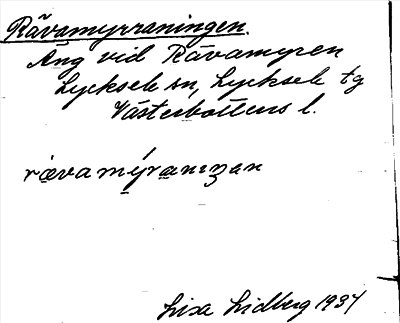 Rävamyrraningen.
Äng vid Rävamyren
Lycksele sn, Lycksele tg
Västerbottens l.
rävamýranıŋən
Lisa Lidberg 1937